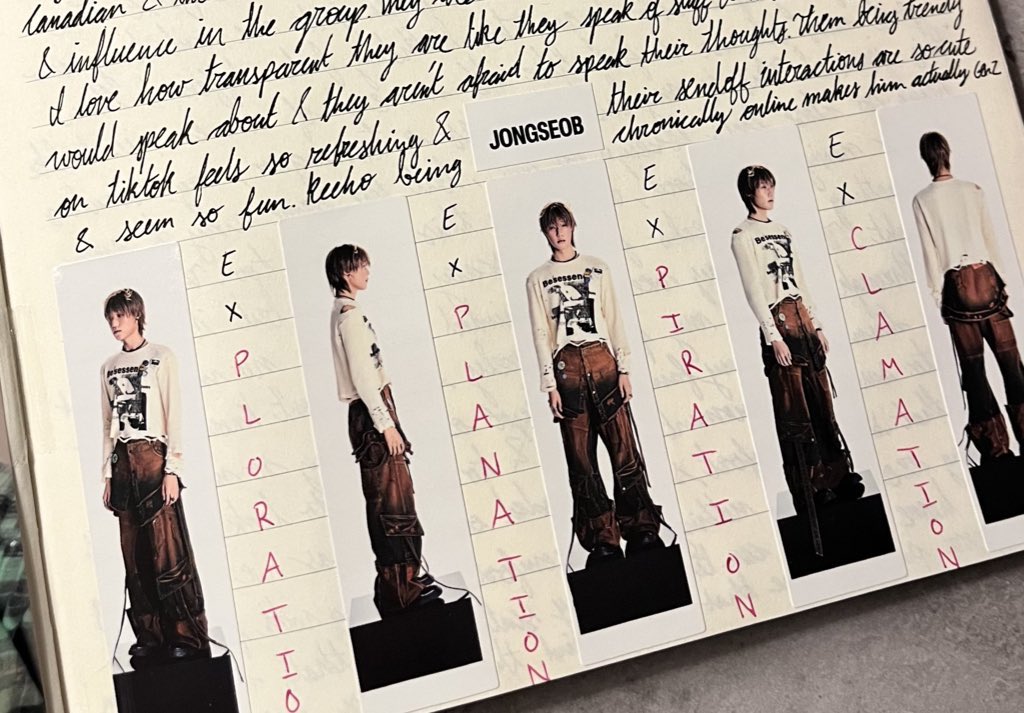 Canadian &
& influence in the group. They
I love how transparent they are like they speak of stuff
would speak about & they aren't afraid to speak their thoughts. Them being trendy
on tiktok feels so refreshing & their sendoff interactions are so cute
& seem so fun. Keeho being chronically online makes him actually Gen Z
JONGSEOB
EXPLORATIO
EXPLANATION
EXPIRATION
EXCLAMATION
Besessen
Besessen